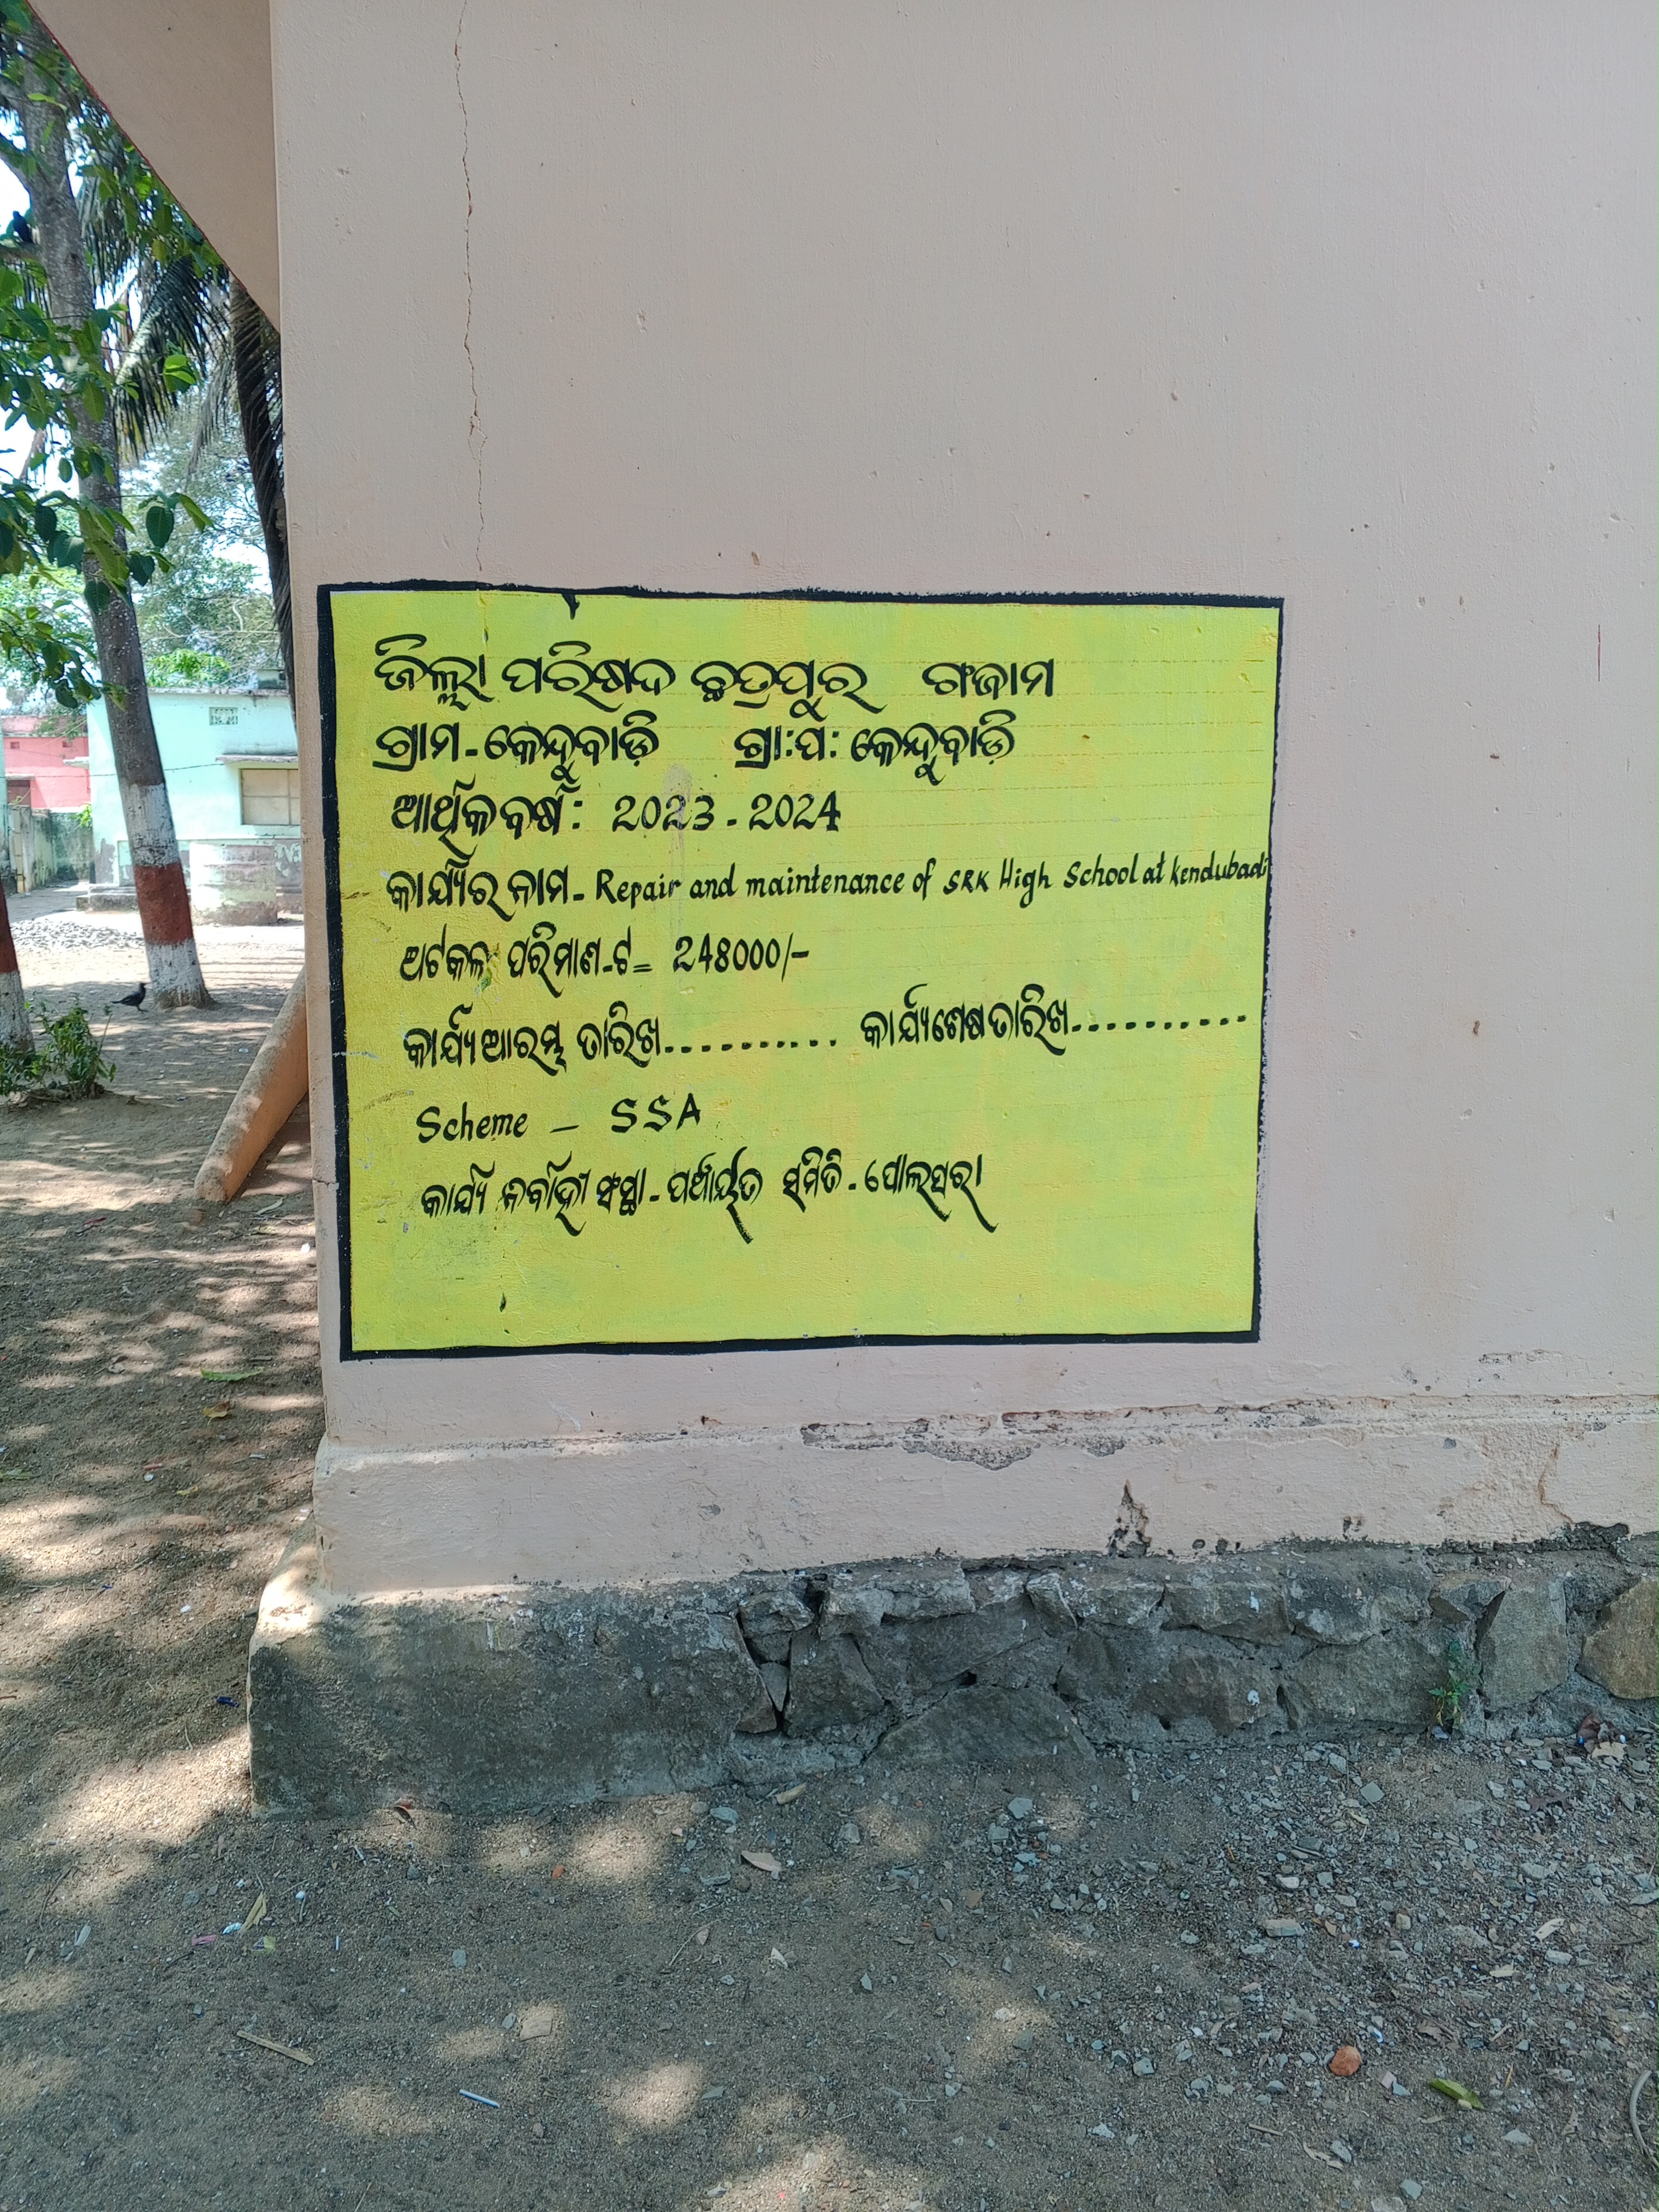 ଜିଲ୍ଲା ପରିଷଦ ଛତ୍ରପୁର ଗଞ୍ଜାମ
ଗ୍ରାମ - କେନ୍ଦୁବାଡ଼ି ଗ୍ରା:ପ: କେନ୍ଦୁବାଡ଼ି
ଆର୍ଥିକ ବର୍ଷ: 2023 - 2024
କାର୍ଯ୍ୟର ନାମ - Repair and maintenance of SRK High School at kendubadi
ଅଟକଳ ପରିମାଣ - ଟ = 248000/-
କାର୍ଯ୍ୟ ଆରମ୍ଭ ତାରିଖ .......... କାର୍ଯ୍ୟ ଶେଷ ତାରିଖ ..........
Scheme - SSA
କାର୍ଯ୍ୟ ନିର୍ବାହୀ ସଂସ୍ଥା - ପଞ୍ଚାୟତ ସମିତି - ପୋଲସରା